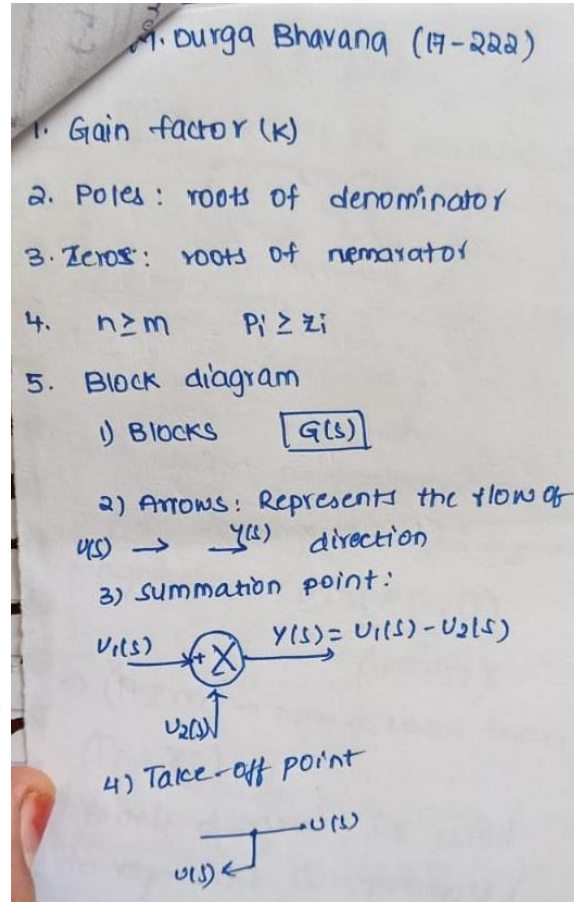 M. Durga Bhavana (17-222)
1. Gain factor (K)
2. Poles: roots of denominator
3. Zeros: roots of nemarator
4. n≥m Pi ≥ Zi
5. Block diagram
1) Blocks G(s)
2) Arrows: Represents the flow of
U(s) → Y(s) direction
3) Summation point:
U1(s) + X Y(s) = U1(s) - U2(s)
U2(s)
4) Take-off point
U(s)
U(s)